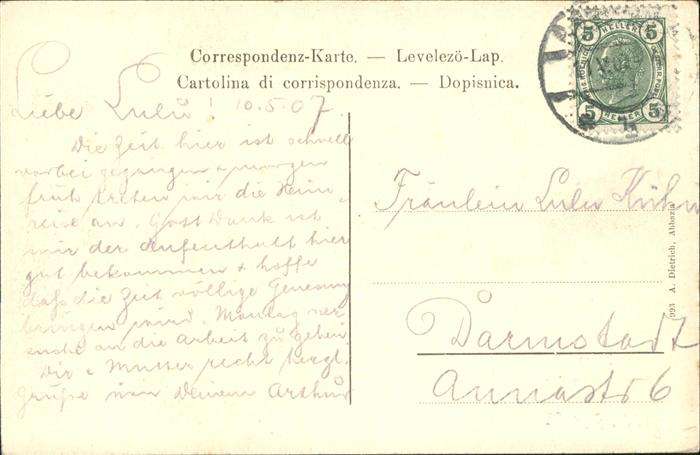 Correspondenz-Karte. — Levelezö-Lap.
Cartolina di corrispondenza. — Dopisnica.
5 HELLER 5
5 HELLER 5
Liebe Lulu! 10.5.07
Die Zeit hier ist schnell
vorbei gegangen & morgen
früh treten wir die Heim-
reise an. Gott Dank ist
mir der Aufenthalt hier
gut bekommen & hoffe
daß die Zeit völlige Genesung
bringen wird. Montag ver-
suche an die Arbeit zu gehen
Dir & Mutter recht herzl.
Grüße von Deinem Arthur
Fräulein Lulu
Darmstadt
Annastr 6
A. Dietrich, Abbazia